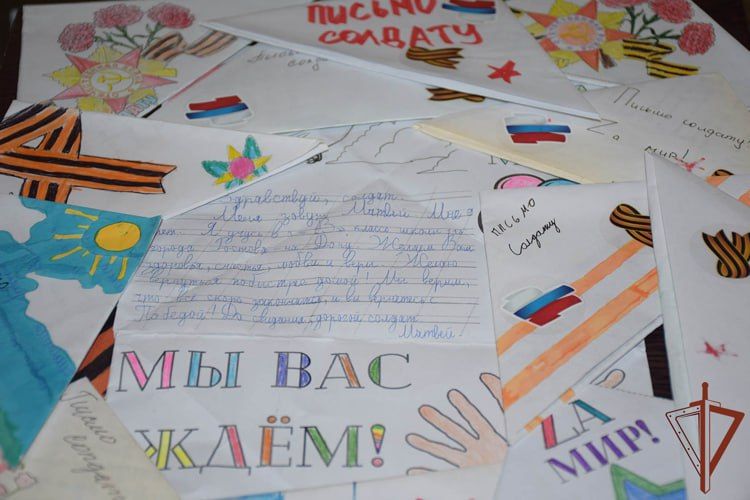 ПИСЬМО
СОЛДАТУ
Письмо солдату
Zа
мир!
Здравствуй, солдат.
Меня зовут Матвей Мне 9
лет. Я учусь в классе школы
города Ростова на Дону Желаем Вам
здоровья, счастья, любви и веры. Желаю
вернуться побыстрее домой! Мы верим,
что всё скоро закончится, и вы вернётесь с
Победой! До свидания, дорогой солдат.
Матвей.
письмо
Солдату
МЫ ВАС
ЖДЁМ!
Письмо
солдату
ZА
МИР!